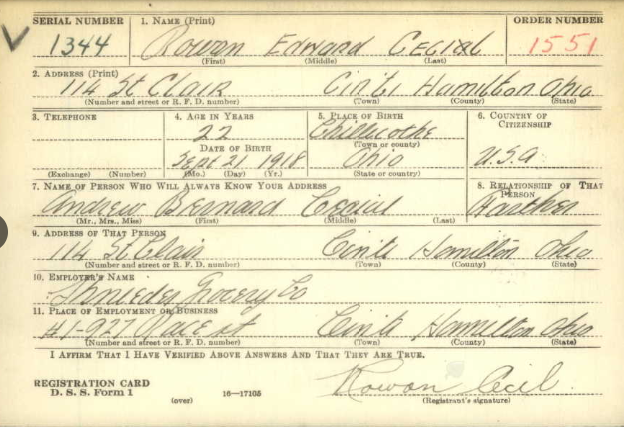 SERIAL NUMBER 1. NAME (Print) ORDER NUMBER
1344 Rowan Edward Cecial 1551
(First) (Middle) (Last)
2. ADDRESS (Print)
114 St Clair Cin'ti Hamilton Ohio
(Number and street or R. F. D. number) (Town) (County) (State)
3. TELEPHONE 4. AGE IN YEARS 5. PLACE OF BIRTH 6. COUNTRY OF CITIZENSHIP
22 Chillicothe
DATE OF BIRTH (Town or county)
Sept 21 1918 Ohio U.S.A.
(Exchange) (Number) (Mo.) (Day) (Yr.) (State or country)
7. NAME OF PERSON WHO WILL ALWAYS KNOW YOUR ADDRESS 8. RELATIONSHIP OF THAT PERSON
Andrew Bernard
(Mr., Mrs., Miss) (First) (Middle) (Last)
9. ADDRESS OF THAT PERSON
114 St Clair Cin'ti Hamilton Ohio
(Number and street or R. F. D. number) (Town) (County) (State)
10. EMPLOYER'S NAME
Grocery Co
11. PLACE OF EMPLOYMENT OR BUSINESS
Cin'ti Hamilton Ohio
(Number and street or R. F. D. number) (Town) (County) (State)
I AFFIRM THAT I HAVE VERIFIED ABOVE ANSWERS AND THAT THEY ARE TRUE.
REGISTRATION CARD
D. S. S. Form 1 16—17105 Rowan Cecil
(over) (Registrant's signature)